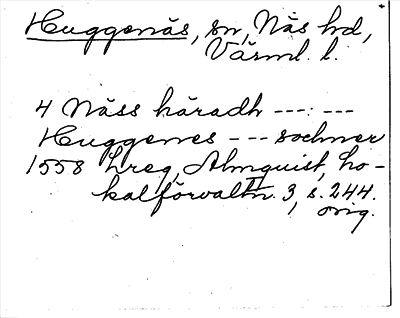 Huggenäs, sn, Näs hd,
Värml. l.
4 Näss häradh ---:---
Huggenes --- sochner
1558 hreg, Almquist, Lo-
kalförvaltn. 3, s. 244.
orig.